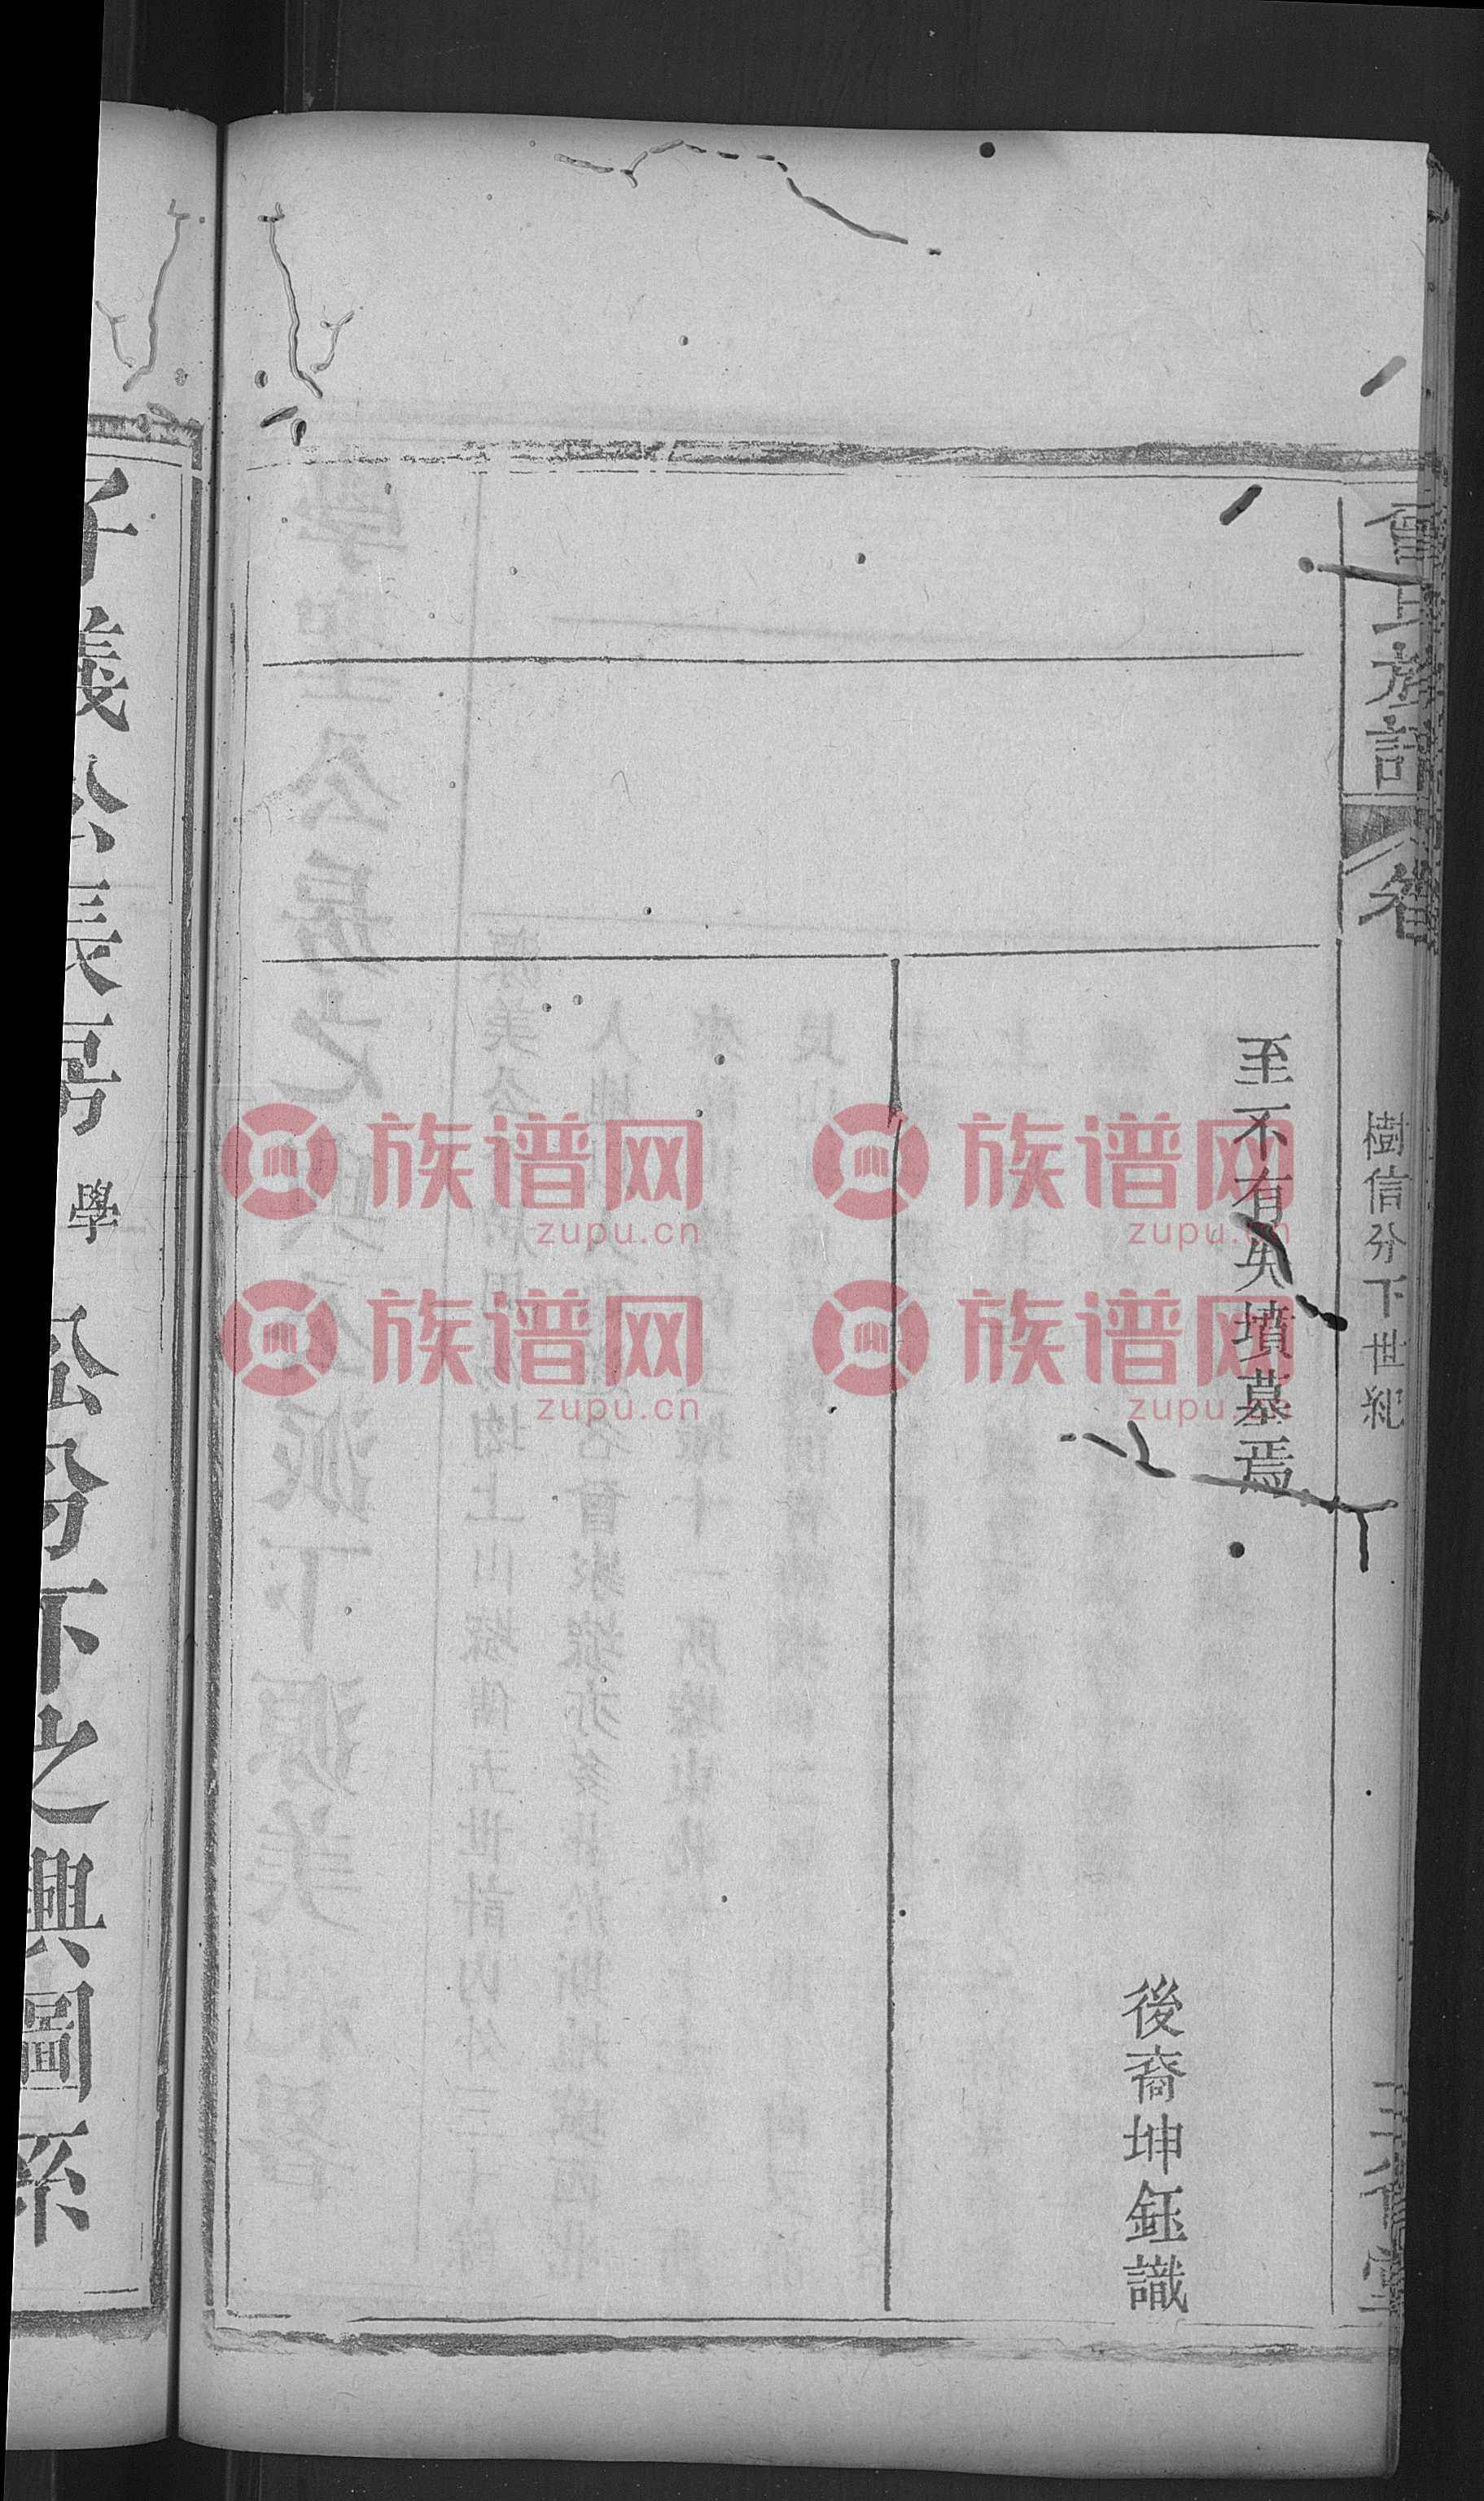 氏族譜
卷
樹信分下世紀
三省堂
至不有失墳墓焉
後裔坤鈺識
子義公長房 學 公分下之興圖系
族谱网
zupu.cn
族谱网
zupu.cn
族谱网
zupu.cn
族谱网
zupu.cn